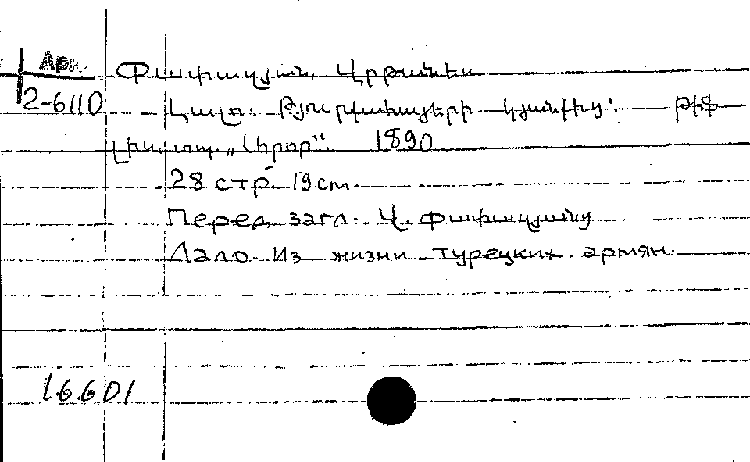 Арм.
2-6110
Փափազյան, Վրթանես
Լալո. Թյուրքահայերի կյանքից: Թիֆ
լիս, տպ. „Արոր". 1890
28 стр. 19 cm.
Перед загл. Վ. Փափազյանց
Лало. Из жизни турецких армян.
16601